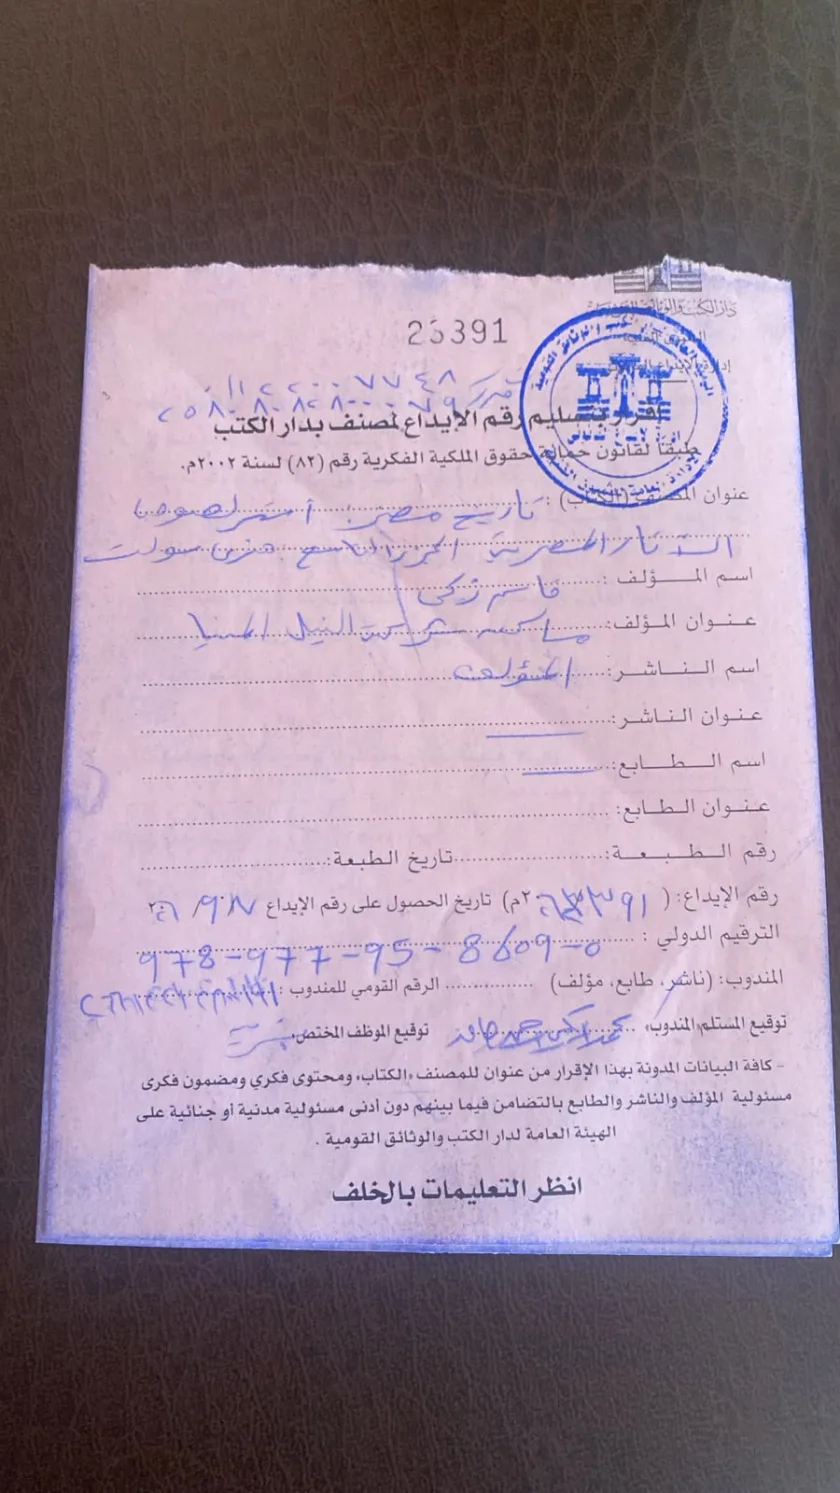 دار الكتب والوثائق القومية
23391
٠١١٢٢٠٠٧٧٤٨
إقرار بتسليم رقم الإيداع لمصنف بدار الكتب
طبقاً لقانون حماية حقوق الملكية الفكرية رقم (٨٢) لسنة ٢٠٠٢م.
عنوان المصنف (الكتاب) : تاريخ مصر: أشهر لصوص
الآثار المصرية الجزء التاسع هنري سولت
اسم المــؤلف : قاسم زكى
عنوان المؤلف: مساكن شركة النيل المنيا
اسم الناشر: المؤلف
عنوان الناشر:
اسم الطابع:
عنوان الطابع:
رقم الطبعة: تاريخ الطبعة:
رقم الإيداع: ( ٢٣٣٩١ ٢م) تاريخ الحصول على رقم الإيداع
الترقيم الدولي : 978-977-95-8609-0
المندوب: (ناشر، طابع، مؤلف) الرقم القومي للمندوب :
توقيع المستلم المندوب، توقيع الموظف المختص،
- كافة البيانات المدونة بهذا الإقرار من عنوان للمصنف «الكتاب» ومحتوى فكري ومضمون فكرى
مسئولية المؤلف والناشر والطابع بالتضامن فيما بينهم دون أدنى مسئولية مدنية أو جنائية على
الهيئة العامة لدار الكتب والوثائق القومية .
انظر التعليمات بالخلف